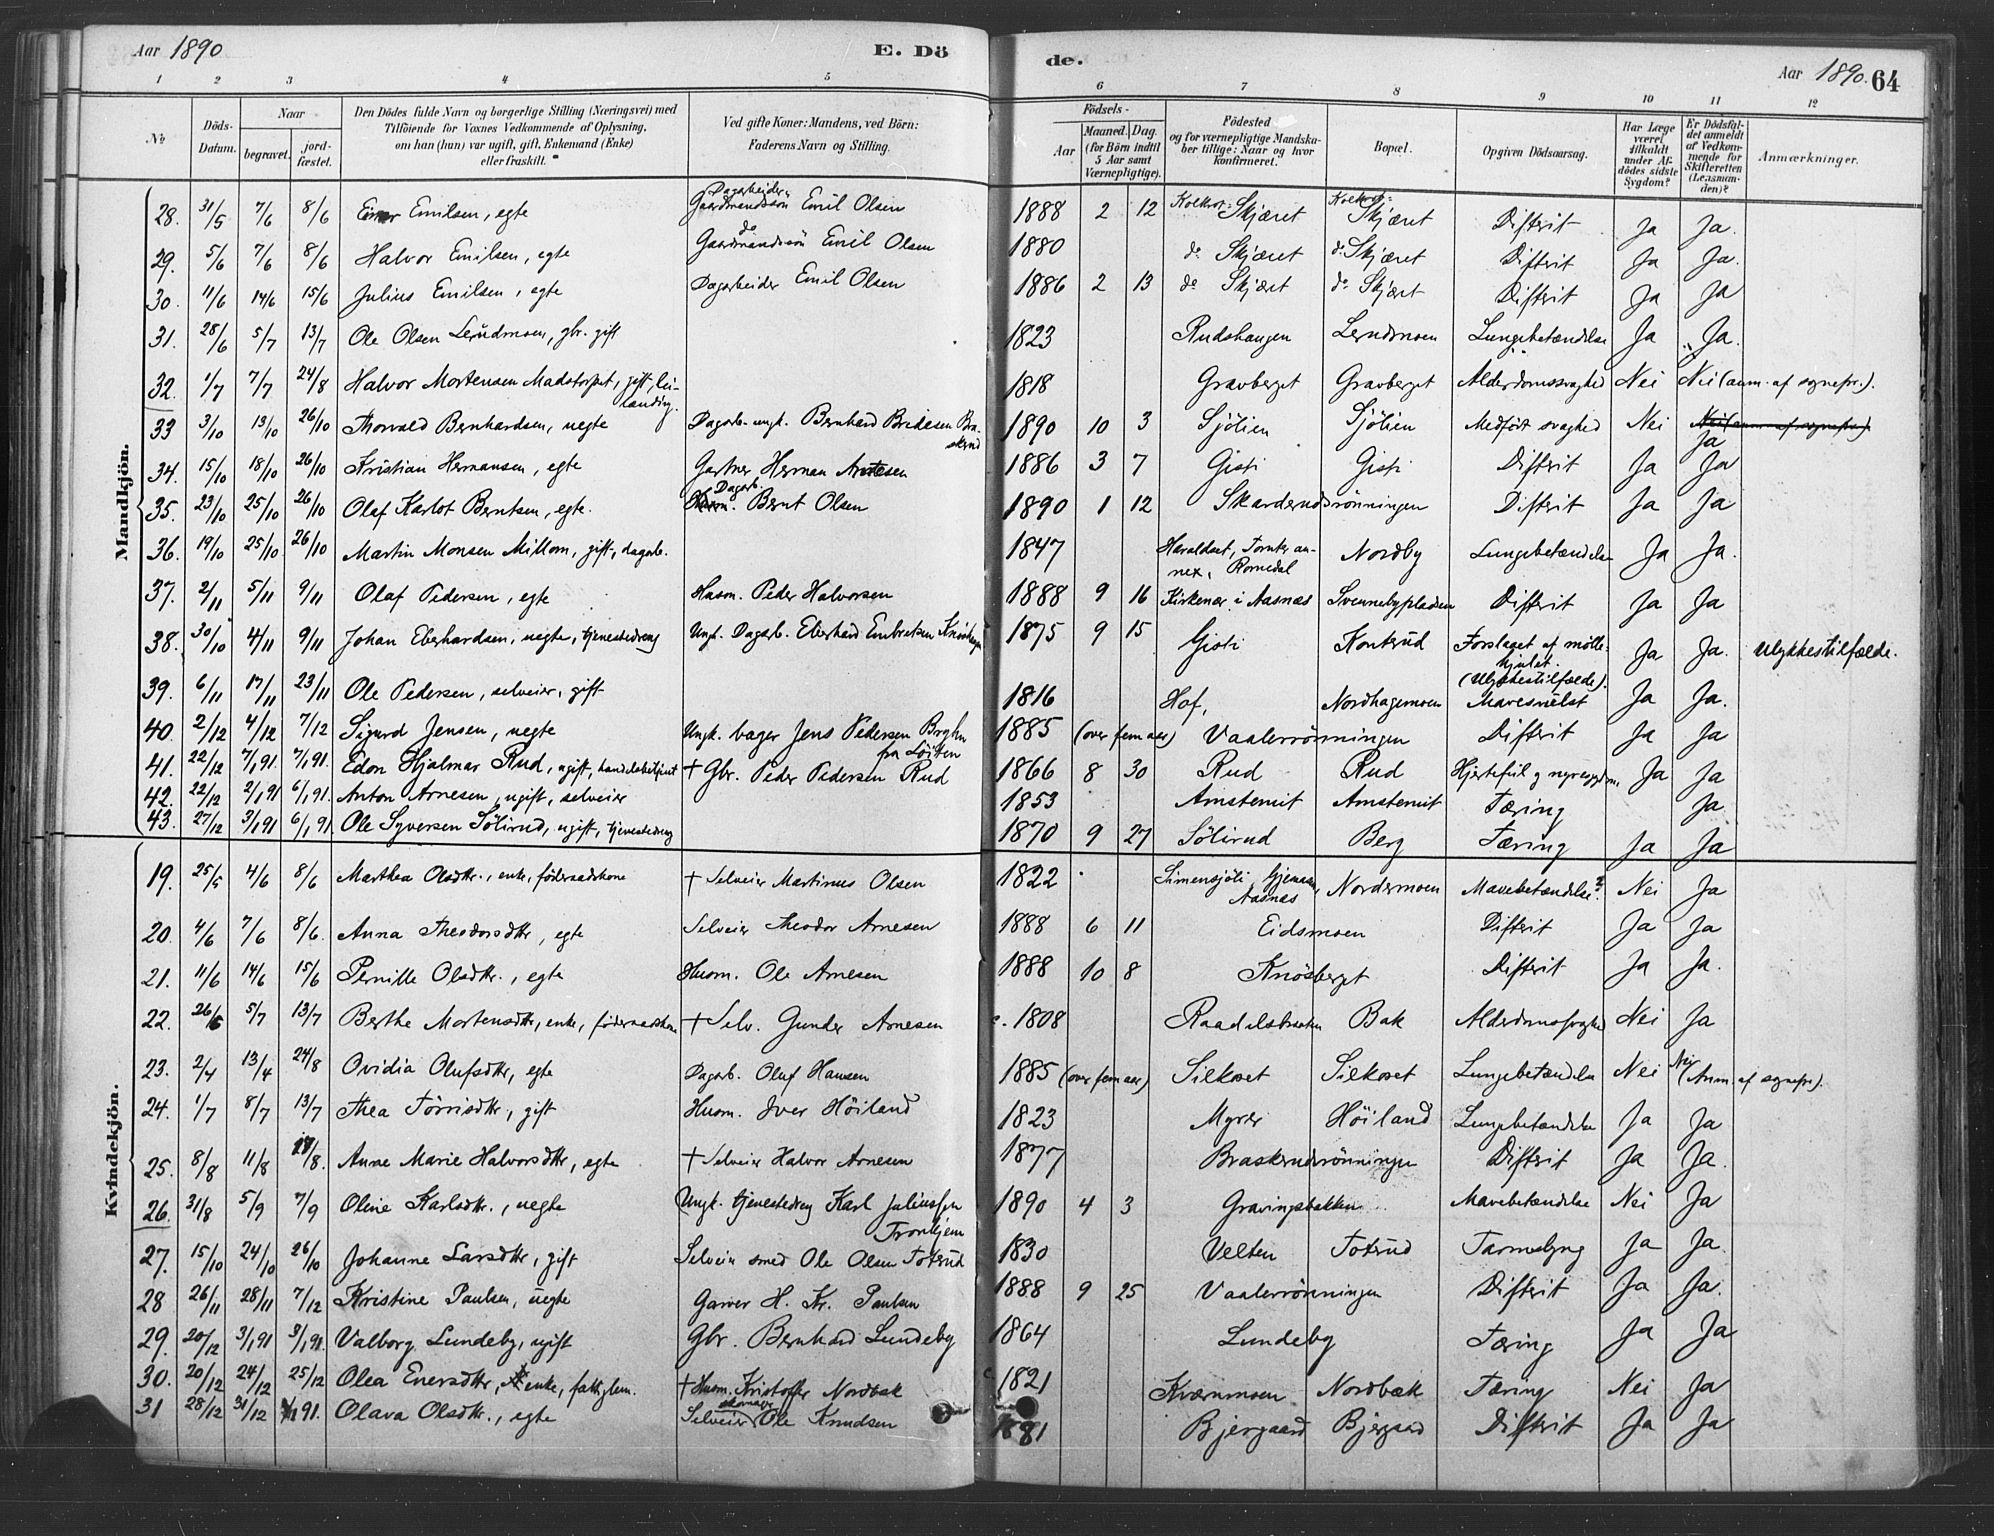 Aar 1890
E. Dö
de.
Aar 1890.
64
1 2 3 4 5 6 7 8 9 10 11 12
No
Döds-Datum.
Naar
begravet.
jord-fæstet.
Den Dödes fulde Navn og borgerlige Stilling (Næringsvei) med
Tilföiende for Voxnes Vedkommende af Oplysning,
om han (hun) var ugift, gift, Enkemand (Enke)
eller fraskilt.
Ved gifte Koner: Mandens, ved Börn:
Faderens Navn og Stilling.
Födsels-
Aar
Maaned. Dag.
(for Börn indtil
5 Aar samt
Værnepligtige).
Födested
og for værnepligtige Mandska-
ber tillige: Naar og hvor
konfirmeret.
Bopæl.
Opgiven Dödsaarsag.
Har Læge
været
tilkaldt
under Af-
dödes sidste
Sygdom?
Er Dödsfal-
det anmeldt
af Vedkom-
mende for
Skifteretten
(Lensman-
den)?
Anmærkninger.
Mandkjön.
28. 31/5 7/6 8/6 Einar Emilsen, egte Dagarbeider Gaardmandssön Emil Olsen 1888 2 12 Skjæret Skjæret Difterit Ja Ja.
29. 5/6 7/6 8/6 Halvor Emilsen, egte do Gaardmandssön Emil Olsen 1880 do Skjæret do Skjæret Difterit Ja Ja.
30. 11/6 14/6 15/6 Julius Emilsen, egte Dagarbeider Emil Olsen 1886 2 13 do Skjæret do Skjæret Difterit Ja Ja
31. 28/6 5/7 13/7 Ole Olsen Lerudmoen, gbr. gift 1823 Rudshaugen Lerudmoen Lungebetændelse Ja Ja.
32. 1/7 7/7 24/8 Halvor Mortensen Madstorpet, gift, lei-
lænding. 1818 Gravberget Gravberget Alderdomssvaghed Nei Nei (anm. af sognepr.).
33 3/10 13/10 26/10 Thorvald Bernhardsen, uegte Dagarb. ungk. Bernhard Bredesen Bra-
skerud 1890 10 3 Sjölien Sjölien Medfödt svaghed Nei Nei (anm. af sognepr.) Ja
34. 15/10 18/10 26/10 Kristian Hermansen, egte Gartner Herman Arntesen 1886 3 7 Gisti Gisti Difterit Ja Ja
35. 23/10 25/10 26/10 Olaf Karlot Berntsen, egte. Husm. Dagarb. Bernt Olsen 1890 1 12 Skarderudsrönningen Difterit Ja Ja
36. 19/10 25/10 26/10 Martin Monsen Millom, gift, dagarb. 1847 Haraldset, an-
nex, Romedal Nordby Lungebetændelse Ja Ja.
37. 2/11 5/11 9/11 Olaf Pedersen, egte Husm. Peder Halvorsen 1888 9 16 Kirkenær i Aasnæs Svennebypladsen Difterit Ja Ja
38. 30/10 4/11 9/11 Johan Eberhardsen, uegte, tjenestedreng Ungk. Dagarb. Eberhard Embretsen 1875 9 15 Gisti Konterud Forslaget af mölle-
hjulet.
(Ulykkestilfælde). Ja Ja. Ulykkestilfælde.
39. 6/11 17/11 23/11 Ole Pedersen, selveier, gift 1816 Hof, Nordhagemoen Mavesvulst Ja Ja.
40. 2/12 4/12 7/12 Sigurd Jensen, uegte Ungk. bager Jens Pedersen
fra Löiten 1885 (over fem aar) Vaalerrönningen Difterit Ja Ja
41. 22/12 7/1 91. 7/1 91. Edon Hjalmar Rud, ugift, handelsbetjent † Gbr. Peder Pedersen Rud 1866 8 30 Rud Rud Hjertefeil og nyresygdom. Ja Ja
42. 22/12 2/1 91 6/1 91. Anton Arnesen, ugift, selveier 1853 Arnstemit Arnstemit Tæring Ja
43. 27/12 3/1 91 6/1 91 Ole Syversen Sölirud, ugift, tjenestedreng 1870 9 27 Sölirud Berg Tæring Ja Ja
Kvindekjön.
19. 25/5 4/6 8/6 Marthea Olsdtr., enke, föderaadskone † Selveier Martinus Olsen 1822 Simensjöli,
Aasnæs Nordermoen Mavebetændelse? Nei Ja
20. 4/6 7/6 8/6. Anna Theodorsdtr, egte Selveier Theodor Arnesen 1888 6 11 Eidsmoen Difterit Ja Ja
21. 11/6 14/6 15/6 Pernille Olsdtr., egte Husm. Ole Arnesen 1888 10 8 Knösberget Difterit Ja Ja.
22. 26/6 5/7 13/7 Berthe Mortensdtr, enke, föderaadskone † Selv. Gunder Arnesen c. 1808 Raadelsbraaten Bak Alderdomssvaghed Nei Ja
23. 2/4 13/4 24/8 Ovidia Olufsdtr, egte Dagarb. Oluf Hansen 1885 (over fem aar) Silkoset Silkoset Lungebetændelse Nei Nei (Anm. af sognepr.).
24. 1/7 8/7 13/7 Thea Törrisdtr, gift Husm. Iver Höiland 1823 Myrer Höiland Lungebetændelse Ja Ja
25. 8/8 11/8 17/8. Anne Marie Halvorsdtr, egte † Selveier Halvor Arnesen 1877 Braskerudsrönningen Difterit Ja Ja.
26. 31/8 5/9 7/9 Oline Karlsdtr., uegte Ungk. tjenestedreng Karl Juliussen
Tronhjem 1890 4 3 Gravingsbakken Mavebetændelse Nei Ja
27. 15/10 24/10 26/10 Johanne Larsdtr, gift Selveier smed Ole Olsen Toterud 1830 Velten Toterud Tarmslyng Ja Ja.
28 26/11 28/11 7/12 Kristine Paulsen, uegte Garver H. Kr. Paulsen 1888 9 25 Vaalerrönningen Difterit Ja Ja.
29. 20/12 3/1 91 3/1 91. Valborg Lundeby, ugift Gbr. Bernhard Lundeby 1864 Lundeby Tæring Ja Ja
30. 20/12 24/12 25/12 Olea Enersdtr, enke, fattiglem. † Husm. Kristoffer Nordbæk c 1821 Kværnmoen Nordbæk Tæring Nei Ja
31 28/12 31/12 1/1 91. Olava Olsdtr., egte Selveier Ole Knudsen 1881 Bjergaard Bjergaard Difterit Ja Ja